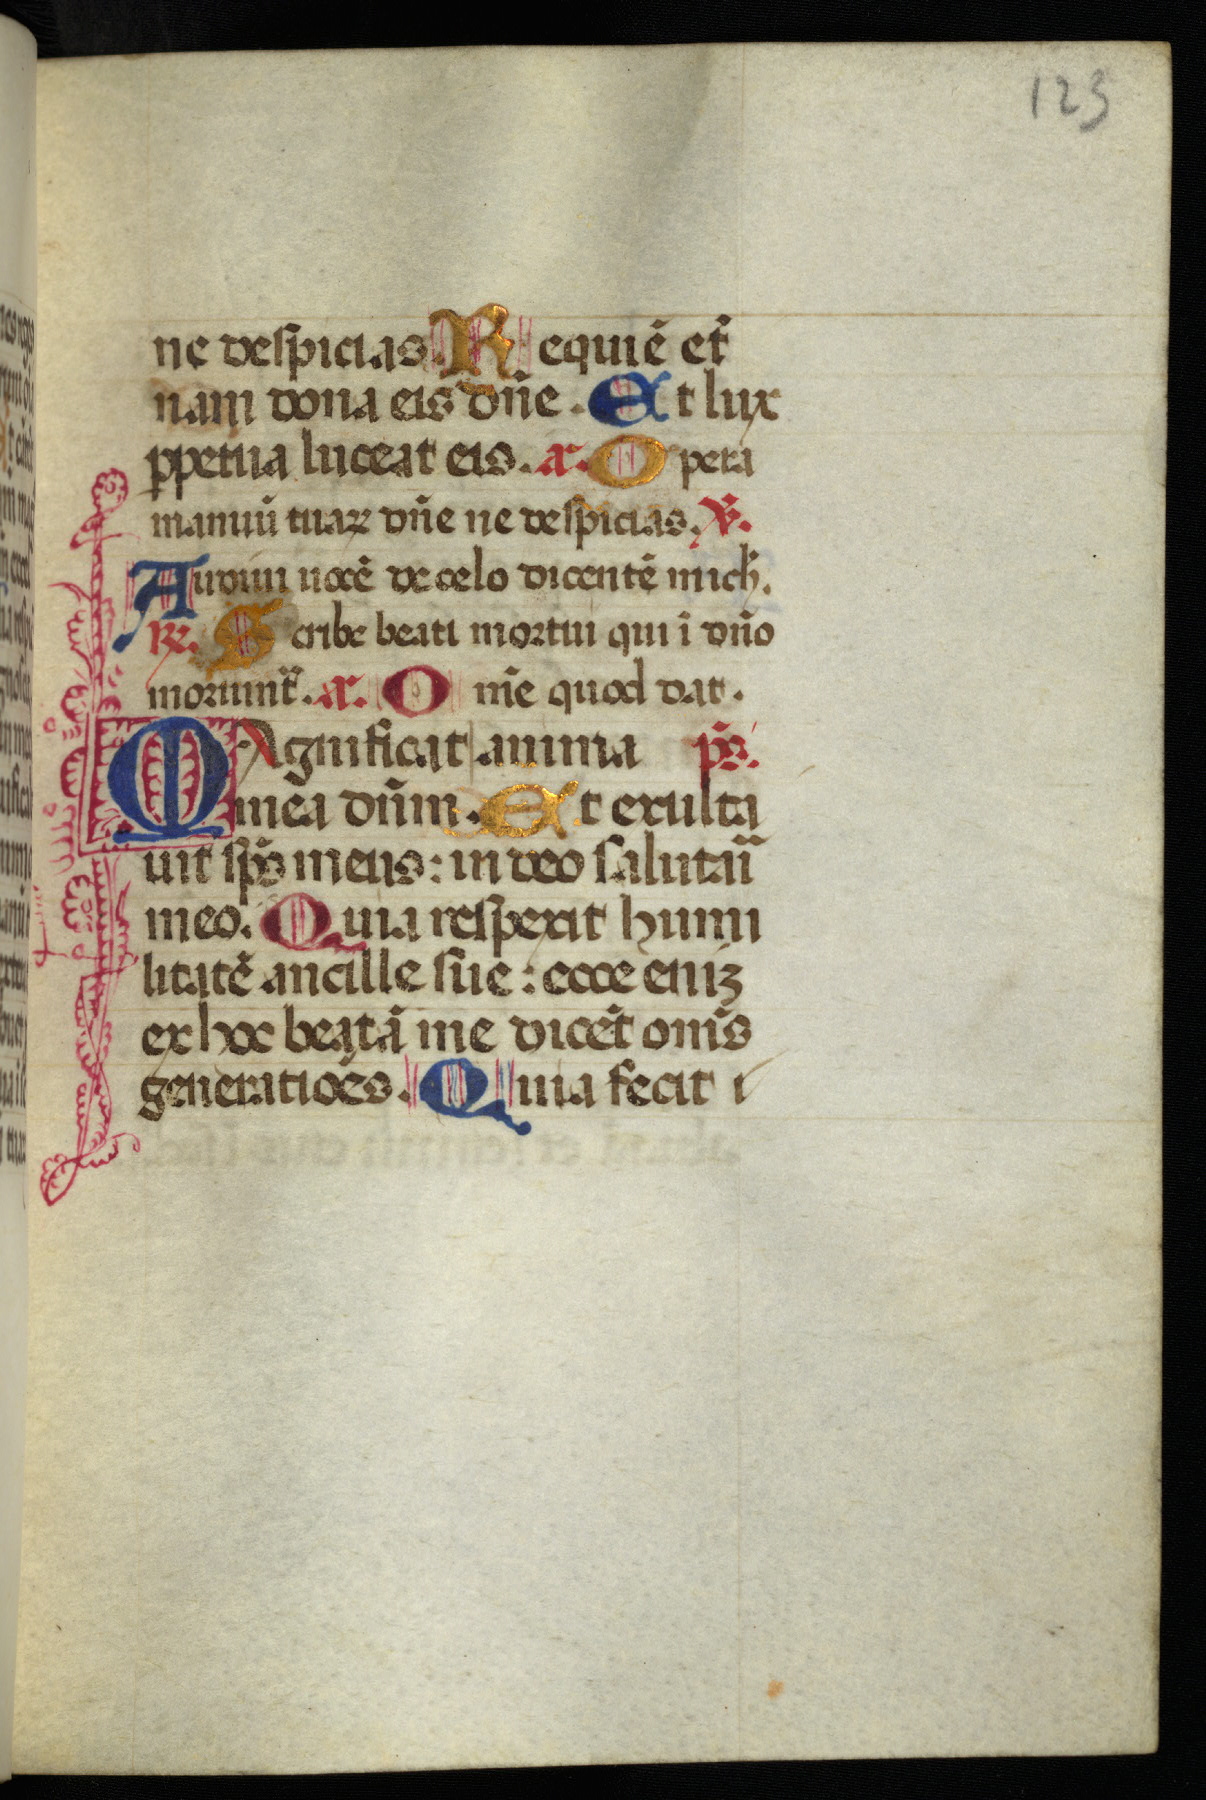 123
ne despicias. Requiē et̄
nam dona eis dn̄e. Et lux
ꝑpetua luceat eis. a. Opera
manuū tuaꝝ dn̄e ne despicias. ℣.
Audiui uocē de celo dicentē mich̄.
℟. Scribe beati mortui qui ī dn̄o
moriunt᷑. a. Om̄e quod dat.
MAgnificat anima p̄s.
mea dn̄m. Et exulta
uit sp̄s meus: in deo salutari
meo. Quia respexit humi
litatē ancille sue: ecce eniȝ
ex hoc beatā me dicēt om̄s
generatiōes. Quia fecit